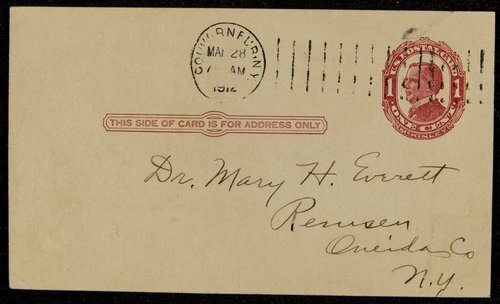 GOUVERNEUR N.Y.
MAR 28
7 AM
1912
U.S. POSTAL CARD
1 1
THIS SIDE OF CARD IS FOR ADDRESS ONLY
Dr. Mary H. Everett
Remsen
Oneida Co
N.Y.